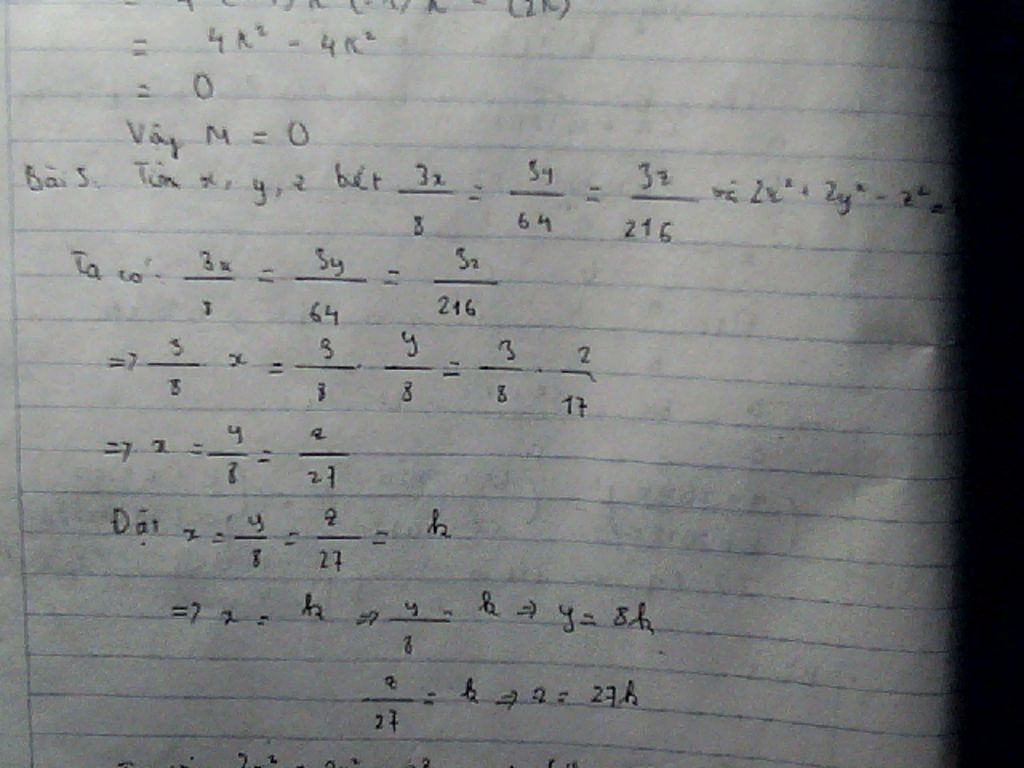 = 4k² - 4k²
= 0
Vậy M = 0
Bài 5. Tìm x, y, z biết 3x/8 = 3y/64 = 3z/216 và 2x² + 2y² - z² =
Ta có: 3x/8 = 3y/64 = 3z/216
=> 3/8 x = 3/8 . y/8 = 3/8 . z/17
=> x = y/8 = z/27
Đặt x = y/8 = z/27 = k
=> x = k => y/8 = k => y = 8k
z/27 = k => z = 27k